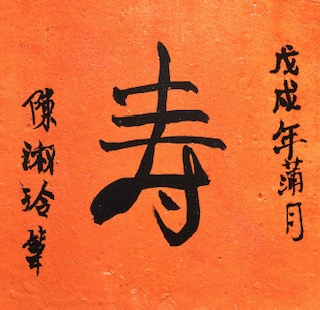 戊戌年蒲月
寿
陳淑玲筆